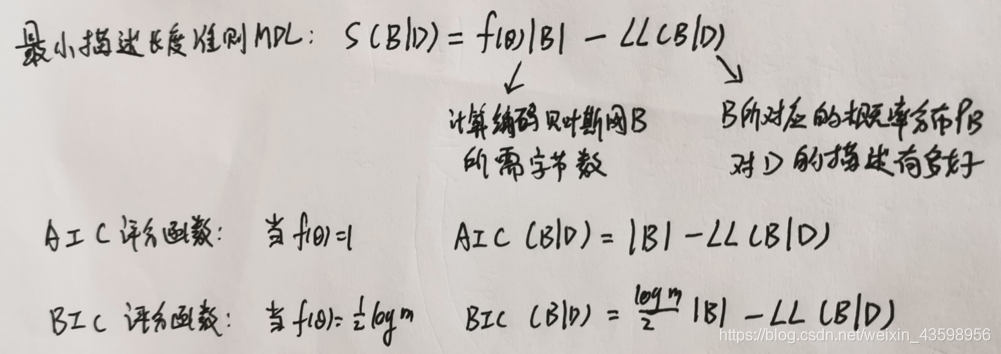 最小描述长度准则MDL: S(B|D) = f(θ)|B| - LL(B|D)
计算编码贝叶斯网B B所对应的概率分布PB
所需字节数 对D的描述有多好
AIC评分函数: 当f(θ)=1 AIC(B|D) = |B| - LL(B|D)
BIC评分函数: 当f(θ)=½logm BIC(B|D) = logm/2 |B| - LL(B|D)
https://blog.csdn.net/weixin_43598956